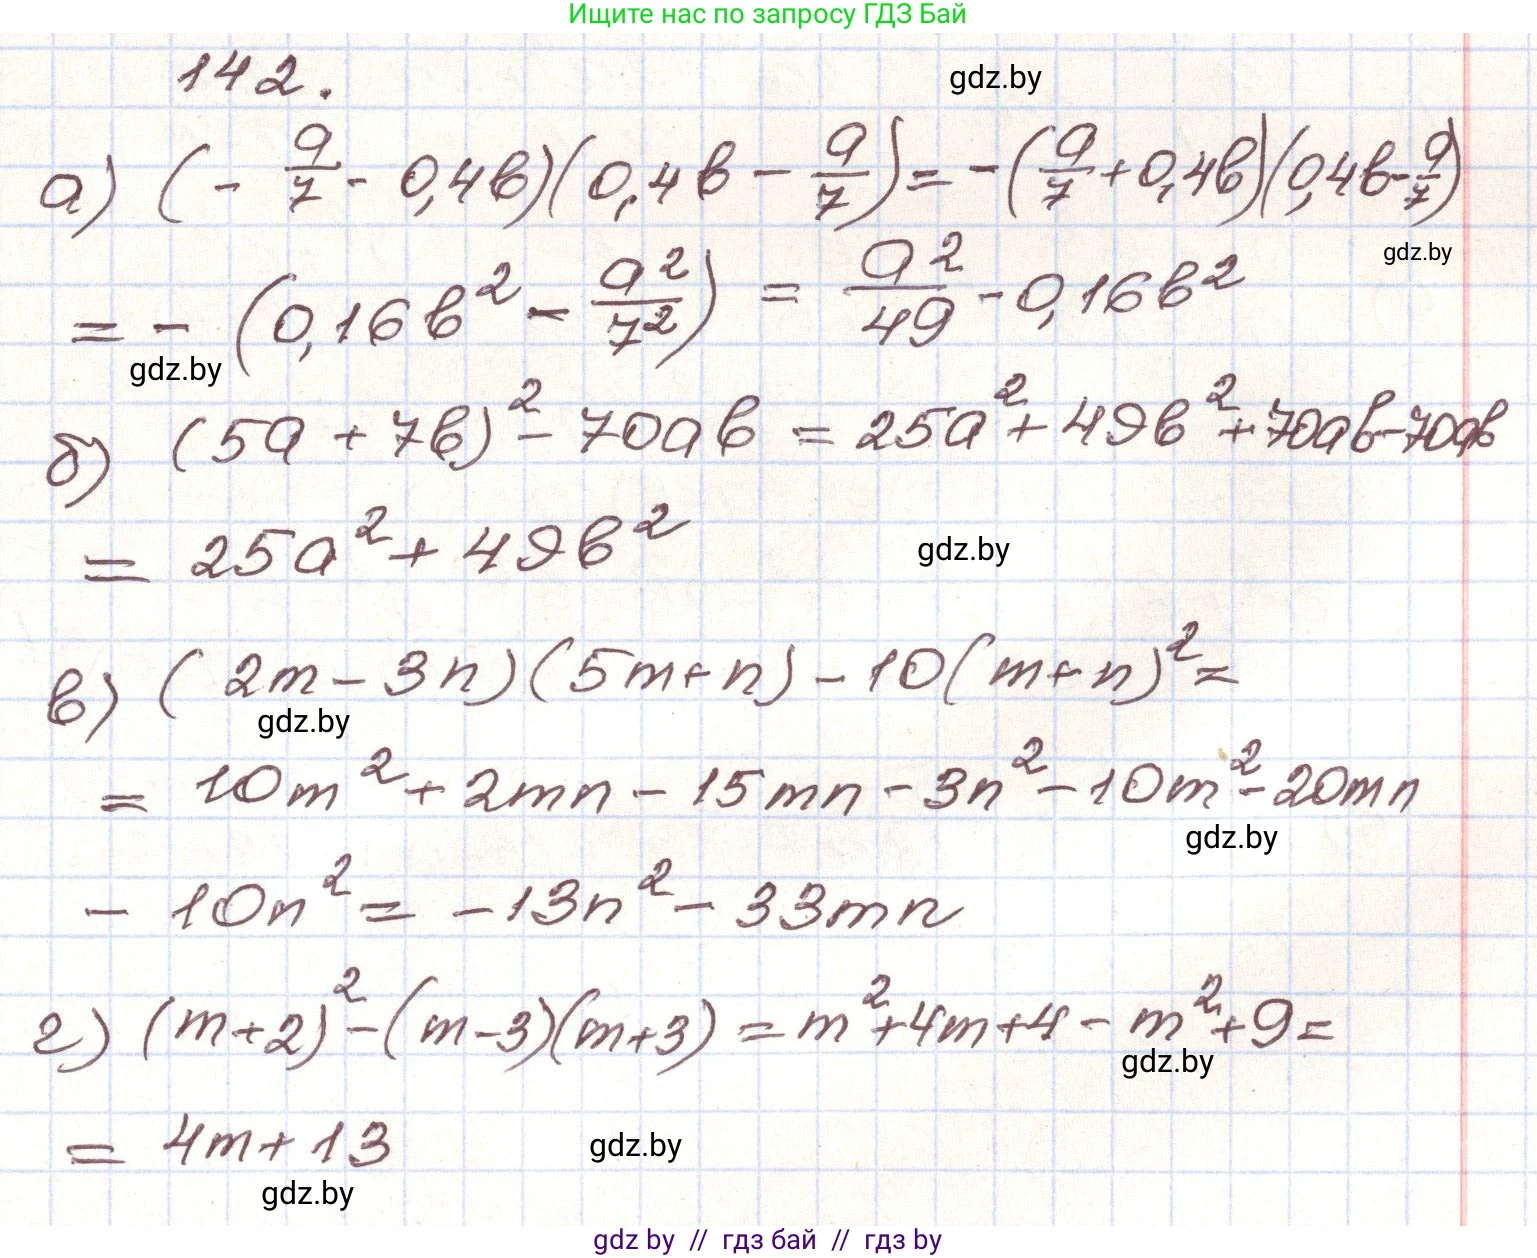 Ищите нас по запросу ГДЗ Бай
142.
gdz.by
а) (- a/7 - 0,4b)(0,4b - a/7) = -(a/7 + 0,4b)(0,4b - a/7)
gdz.by
= - (0,16b² - a²/7²) = a²/49 - 0,16b²
gdz.by
б) (5a + 7b)² - 70ab = 25a² + 49b² + 70ab - 70ab
= 25a² + 49b²
gdz.by
в) (2m - 3n)(5m + n) - 10(m + n)² =
gdz.by
= 10m² + 2mn - 15mn - 3n² - 10m² - 20mn
gdz.by
- 10n² = -13n² - 33mn
г) (m + 2)² - (m - 3)(m + 3) = m² + 4m + 4 - m² + 9 =
gdz.by
= 4m + 13
gdz.by
gdz.by
gdz by // гдз бай // гдз by